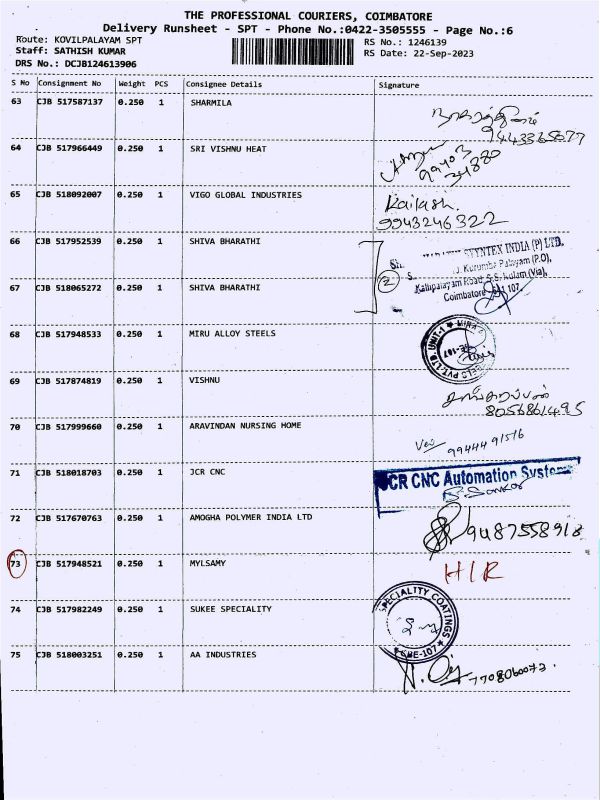 THE PROFESSIONAL COURIERS, COIMBATORE
Delivery Runsheet - SPT - Phone No.:0422-3505555 - Page No.:6
Route: KOVILPALAYAM SPT
Staff: SATHISH KUMAR
DRS No.: DCJB124613906
RS No.: 1246139
RS Date: 22-Sep-2023
S No Consignment No Weight PCS Consignee Details Signature
63 CJB 517587137 0.250 1 SHARMILA
64 CJB 517966449 0.250 1 SRI VISHNU HEAT
65 CJB 518092007 0.250 1 VIGO GLOBAL INDUSTRIES Kailash.
9943246322
66 CJB 517952539 0.250 1 SHIVA BHARATHI
SYNTEX INDIA (P) LTD.
Kurumba Palayam (P.O),
67 CJB 518065272 0.250 1 SHIVA BHARATHI 2
Kalipalayam Road, S.S. Kulam (Via),
Coimbatore 107.
68 CJB 517948533 0.250 1 MIRU ALLOY STEELS
69 CJB 517874819 0.250 1 VISHNU
8056861495
70 CJB 517999660 0.250 1 ARAVINDAN NURSING HOME
71 CJB 518018703 0.250 1 JCR CNC JCR CNC Automation Systems
72 CJB 517670763 0.250 1 AMOGHA POLYMER INDIA LTD 9487558918
73 CJB 517948521 0.250 1 MYLSAMY H/R
74 CJB 517982249 0.250 1 SUKEE SPECIALITY SPECIALITY COATINGS
CBE-107
75 CJB 518003251 0.250 1 AA INDUSTRIES 7708060073.